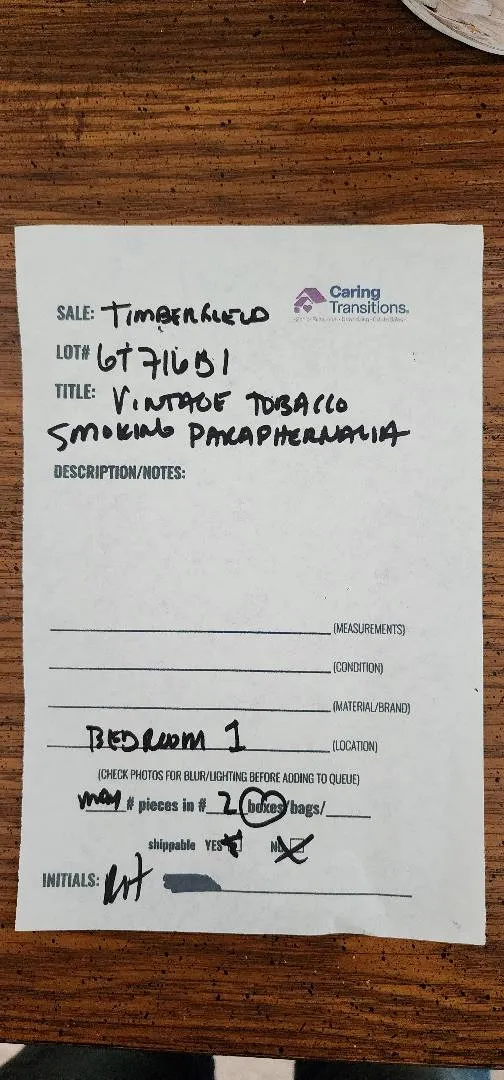 Caring
Transitions.
SALE: TIMBERFIELD
LOT# 6T716B1
TITLE: VINTAGE TOBACCO
SMOKING PARAPHERNALIA
DESCRIPTION/NOTES:
(MEASUREMENTS)
(CONDITION)
(MATERIAL/BRAND)
BEDROOM 1 (LOCATION)
(CHECK PHOTOS FOR BLUR/LIGHTING BEFORE ADDING TO QUEUE)
many # pieces in # 2 boxes/bags/
shippable YES NO
INITIALS: